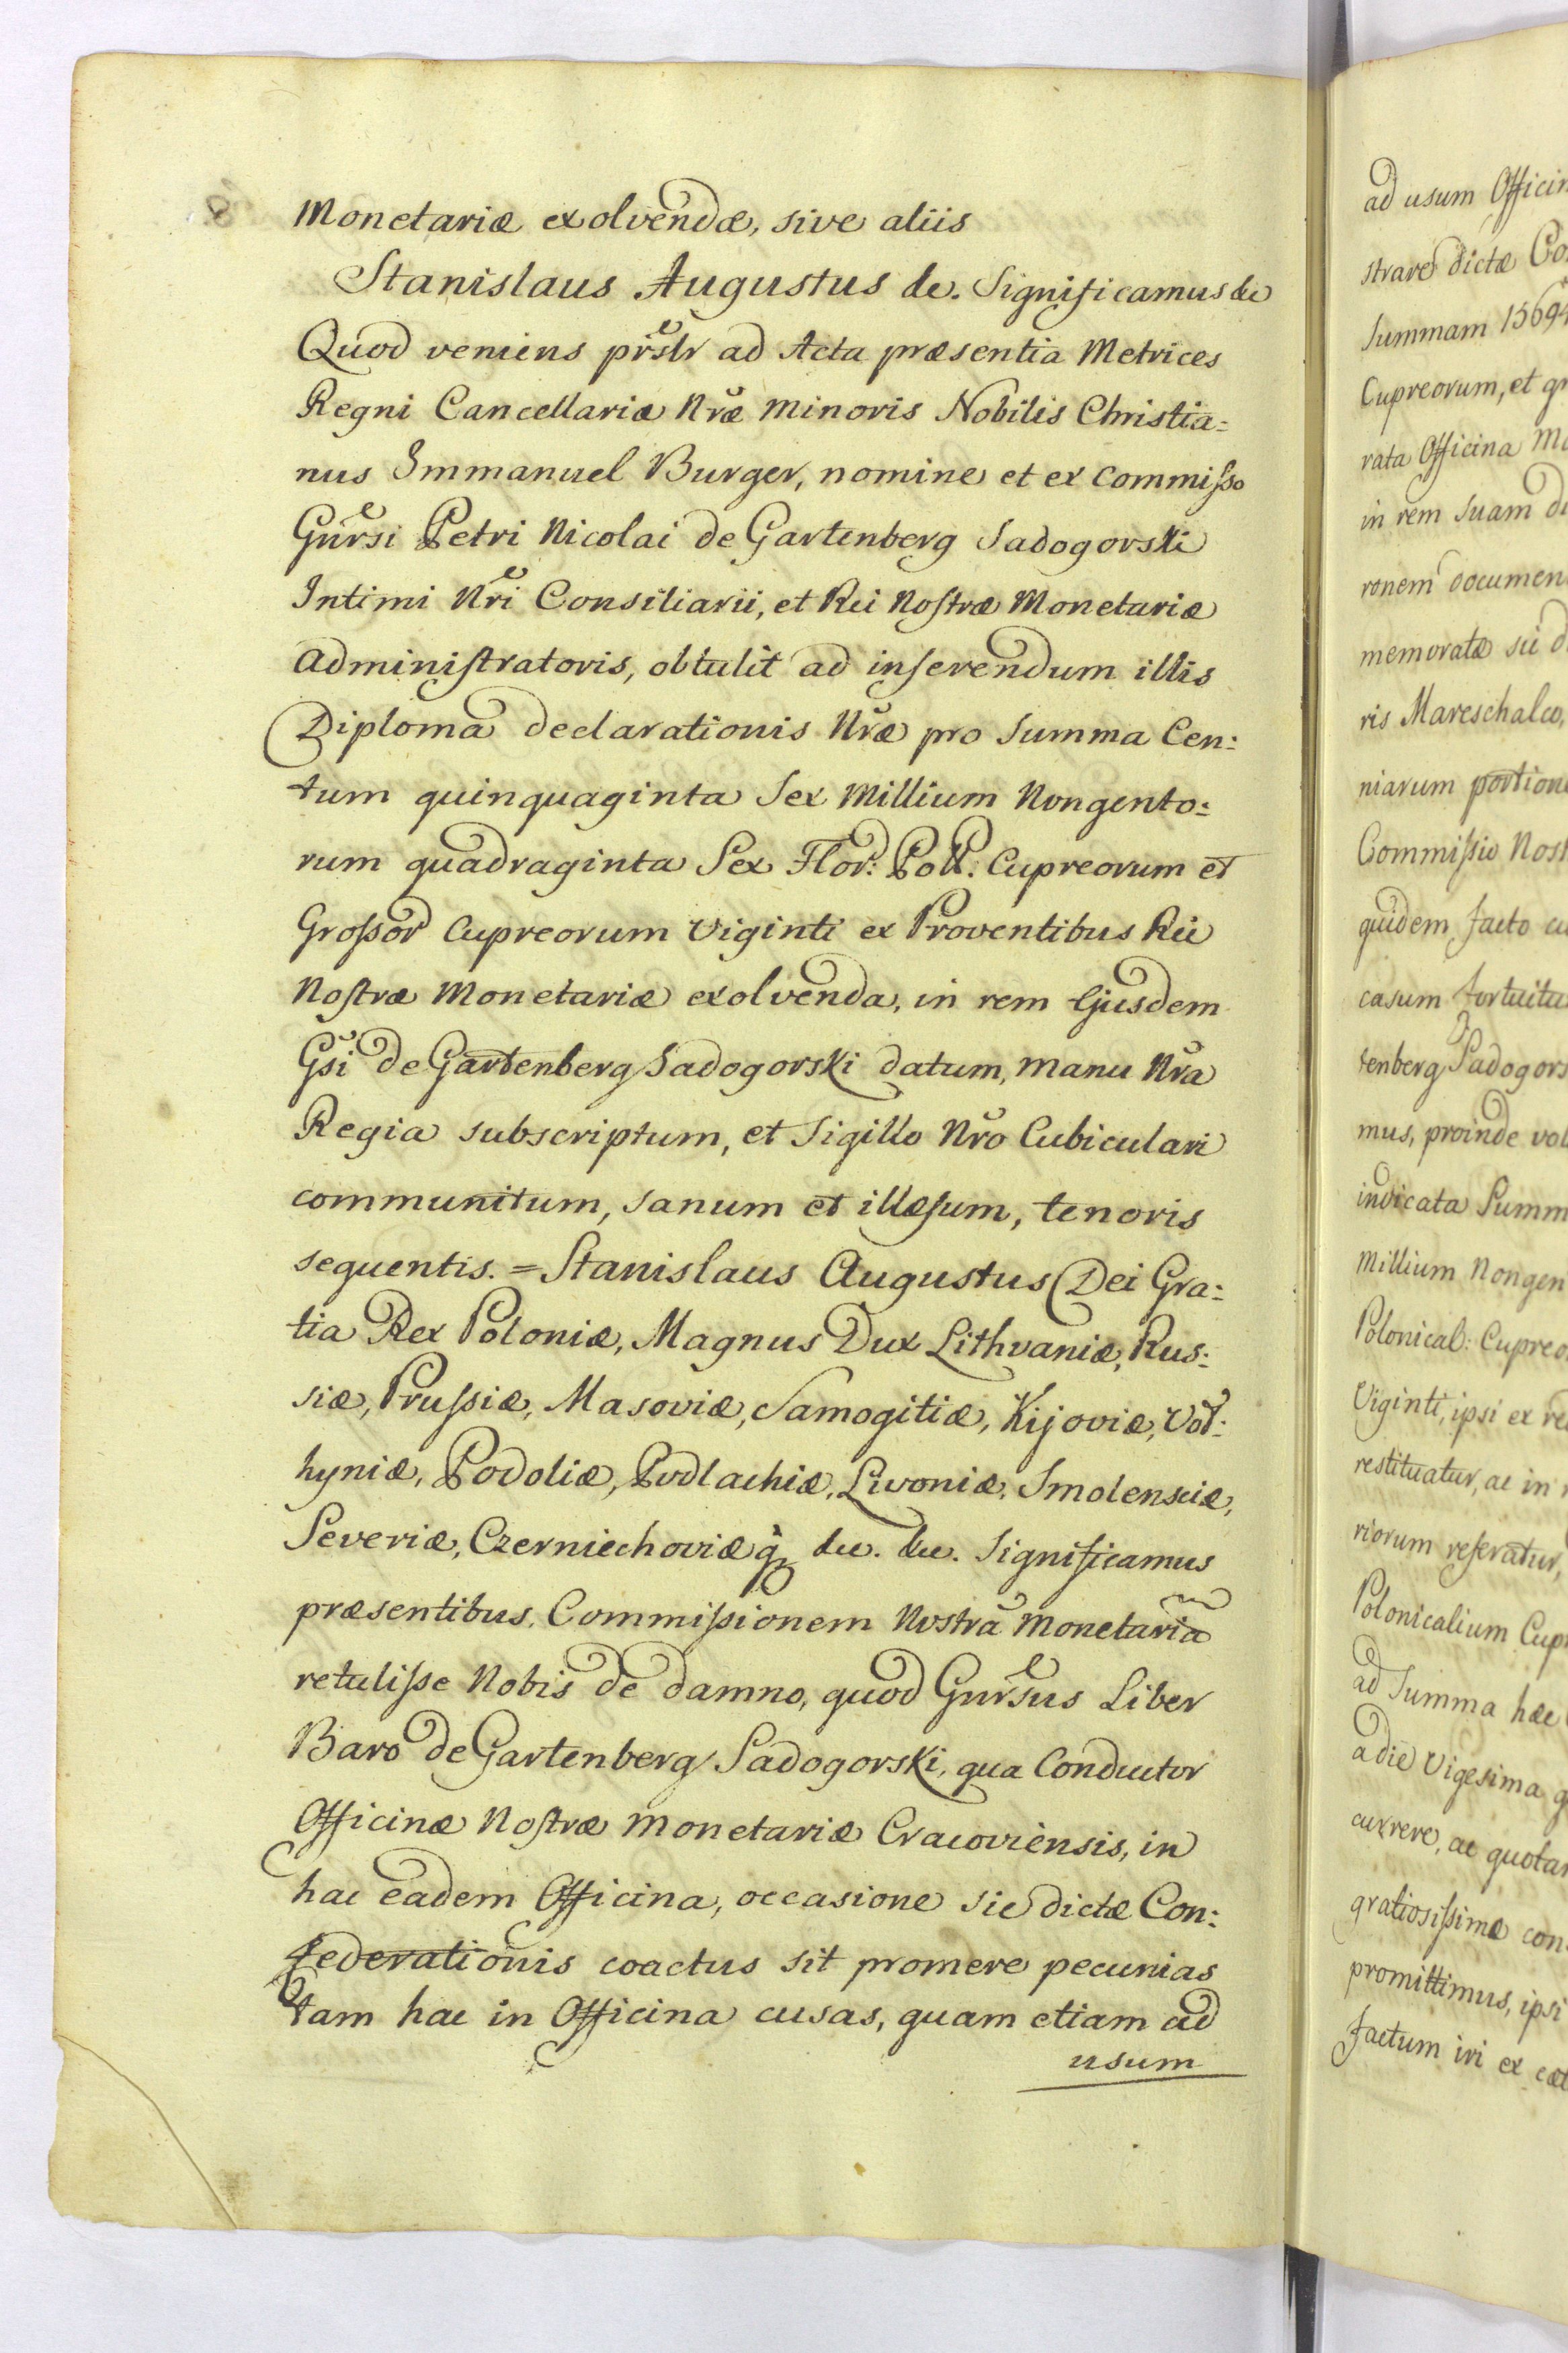 Monetariæ exolvendæ, sive aliis
Stanislaus Augustus &c. Significamus &c
Quod veniens prslr ad Acta præsentia Metrices
Regni Cancellariæ Nræ Minoris Nobilis Christia=
nus Immanuel Burger, nomine et ex Commisso
Gnrsi Petri Nicolai de Gartenberg Sadogorski
Intimi Nri Consiliarii, et Rei Nostræ Monetariæ
Administratoris, obtulit ad inserendum illis
Diploma declarationis Nræ pro Summa Cen=
tum quinquaginta Sex Millium Nongento=
rum quadraginta Sex Flor: Poll: Cupreorum et
Grossor Cupreorum Viginti ex Proventibus Rei
Nostræ Monetariæ exolvenda, in rem Ejusdem
Gsi de Gartenberg Sadogorski datum, manu Nra
Regia subscriptum, et Sigillo Nro Cubiculari
communitum, sanum et illæsum, tenoris
sequentis. = Stanislaus Augustus Dei Gra=
tia Rex Poloniæ, Magnus Dux Lithvaniæ, Rus=
siæ, Prussiæ, Masoviæ, Samogitiæ, Kijoviæ, Vol=
hyniæ, Podoliæ, Podlachiæ, Livoniæ, Smolensciæ,
Severiæ, Czerniechoviæq &c. &c. Significamus
præsentibus, Commissionem Nostrã Monetariã
retulisse Nobis de damno, quod Gnrsus Liber
Baro de Gartenberg Sadogorski, qua Conductor
Officinæ Nostræ Monetariæ Cracoviensis, in
hac eadem Officina, occasione sic dictæ Con=
federationis coactus sit promere pecunias
tam hac in Officina cusas, quam etiam ad
usum
ad usum
strare dictæ
Summam 15694
Cupreorum, et
rata Officina
in rem Suam
ronem
memoratæ sic
ris Mareschalco,
niarum
Commissio
quidem facto
casum
tenberg
mus, proinde
indicata
Millium
Polonical: 
Viginti, ipsi ex
restituatur, ac in
riorum referatur,
Polonicalium
ad Summa hæc
a die Vigesima
currere, ac
gratiosissime
promittimus, ipsi
factum iri ex